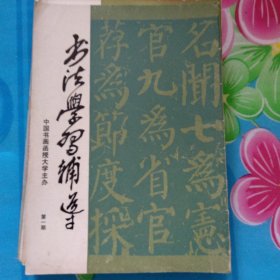 书法学习辅导
中国书画函授大学主办
第一期
名闻七為憲
官九為省官
荐為節度探